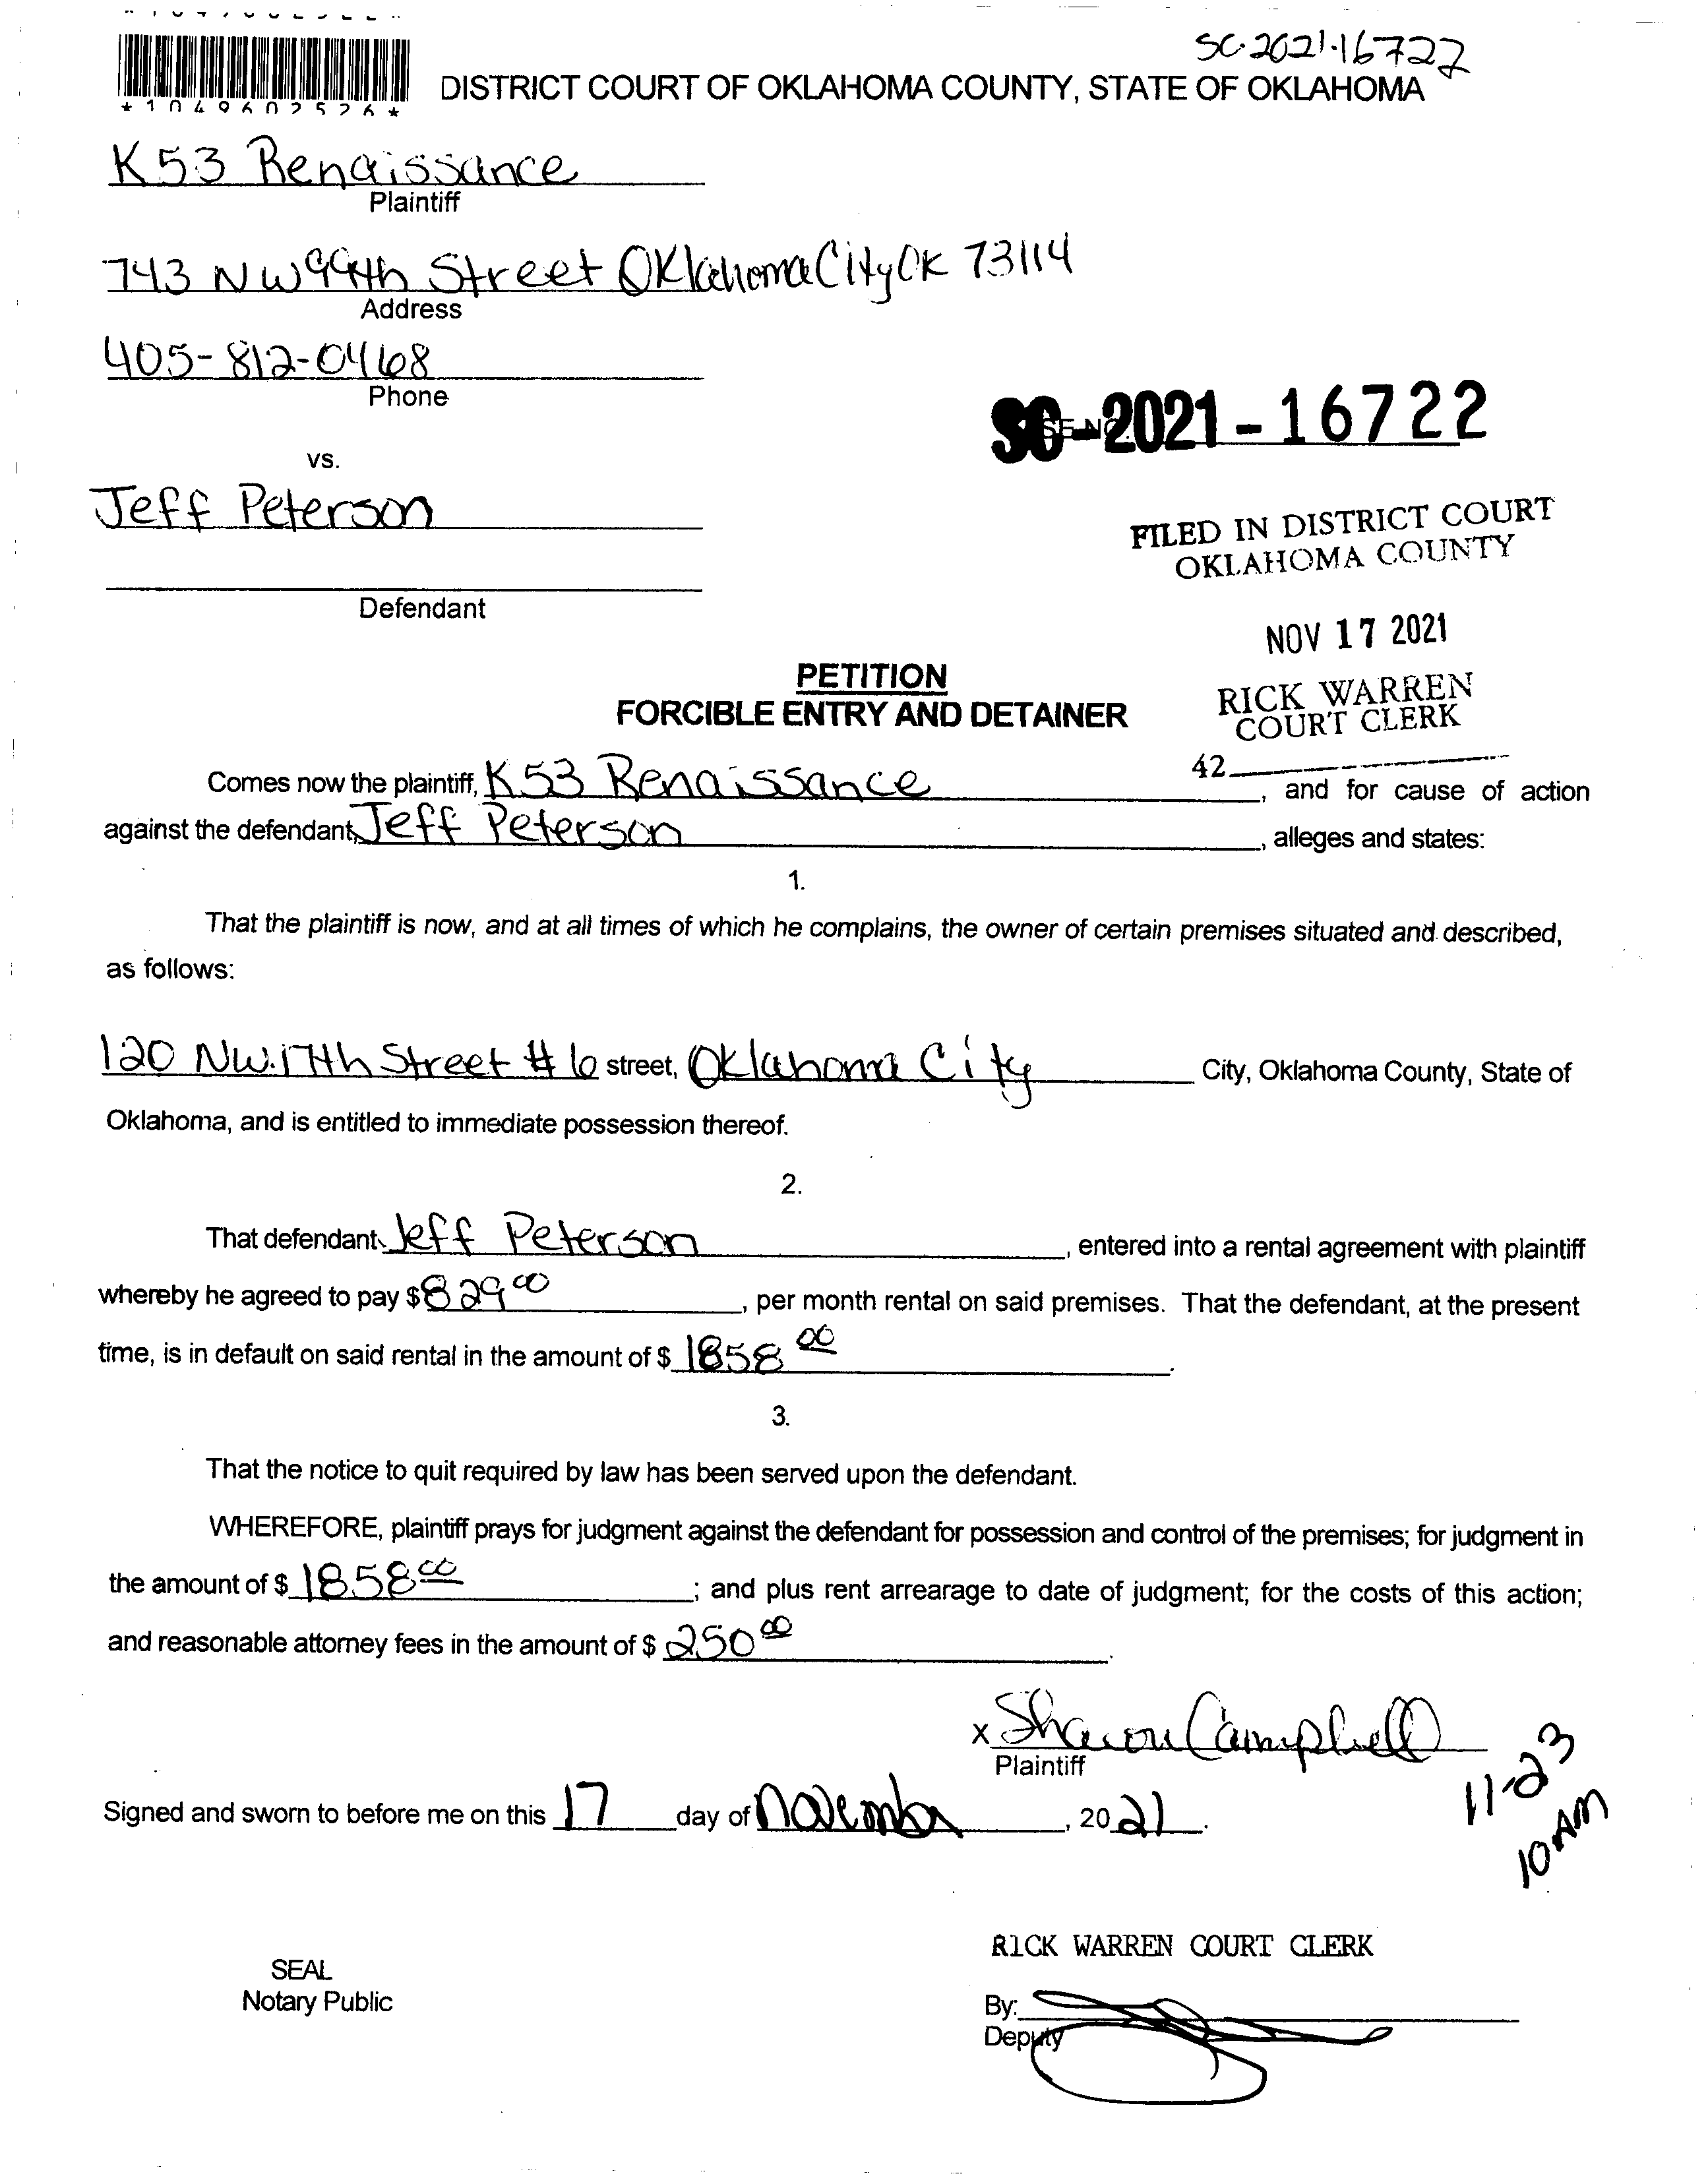 SC-2021-16722
*1049602526*
DISTRICT COURT OF OKLAHOMA COUNTY, STATE OF OKLAHOMA
K53 Renaissance
Plaintiff
743 NW 99th Street Oklahoma City OK 73114
Address
405-812-0468
Phone
SC-2021-16722
vs.
Jeff Peterson
FILED IN DISTRICT COURT
OKLAHOMA COUNTY
Defendant
NOV 17 2021
PETITION
FORCIBLE ENTRY AND DETAINER
RICK WARREN
COURT CLERK
42
Comes now the plaintiff, K53 Renaissance, and for cause of action
against the defendant, Jeff Peterson, alleges and states:
1.
That the plaintiff is now, and at all times of which he complains, the owner of certain premises situated and described,
as follows:
120 NW. 17th Street # 6 street, Oklahoma City City, Oklahoma County, State of
Oklahoma, and is entitled to immediate possession thereof.
2.
That defendant, Jeff Peterson, entered into a rental agreement with plaintiff
whereby he agreed to pay $829 00, per month rental on said premises. That the defendant, at the present
time, is in default on said rental in the amount of $ 1858 00.
3.
That the notice to quit required by law has been served upon the defendant.
WHEREFORE, plaintiff prays for judgment against the defendant for possession and control of the premises; for judgment in
the amount of $ 1858 00; and plus rent arrearage to date of judgment; for the costs of this action;
and reasonable attorney fees in the amount of $ 250 00.
x Sharon Campbell
Plaintiff
11-23
10 AM
Signed and sworn to before me on this 17 day of November, 2021.
RICK WARREN COURT CLERK
SEAL
Notary Public
By:
Deputy